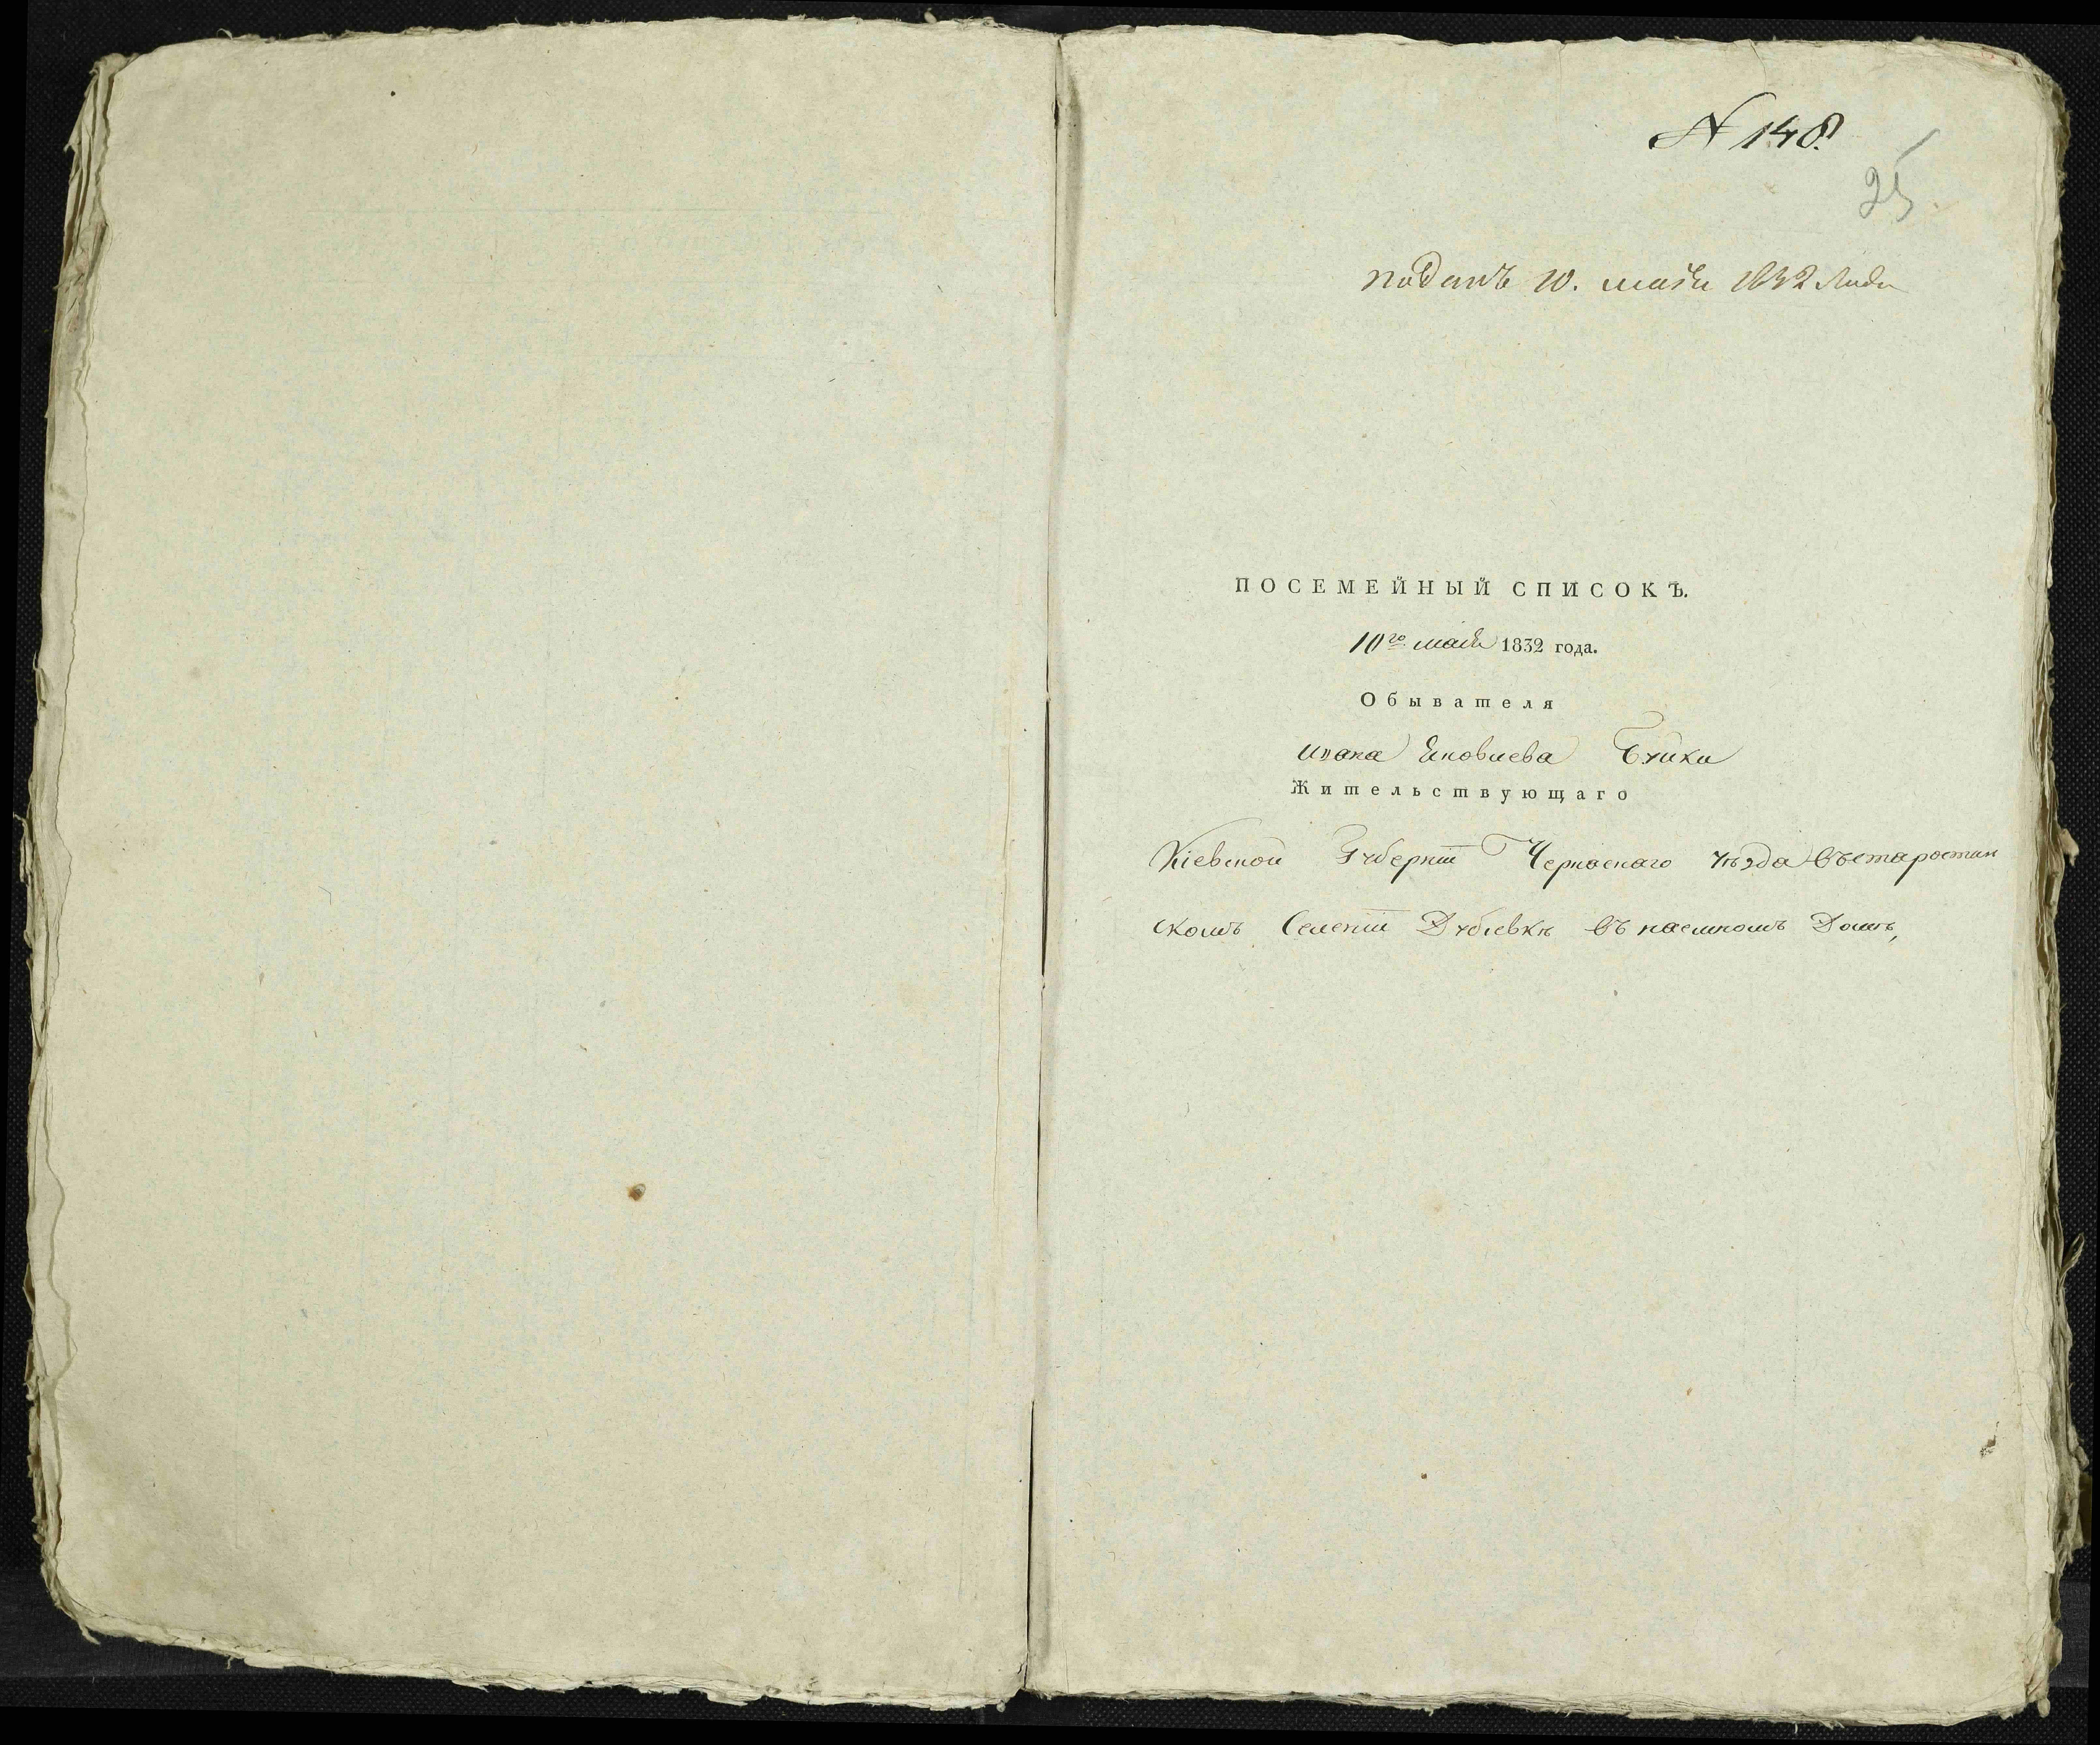 N 148.
25
поданъ 10. маiя 1832 года
ПОСЕМЕЙНЫЙ СПИСОКЪ.
10го маiя 1832 года.
Обывателя
Ивана Яковлева Буйки
Жительствующаго
Кіевской Губерніи Черкаскаго уѣзда въ старостин
скомъ Селеніи Дубіевкѣ въ наемномъ Домѣ,